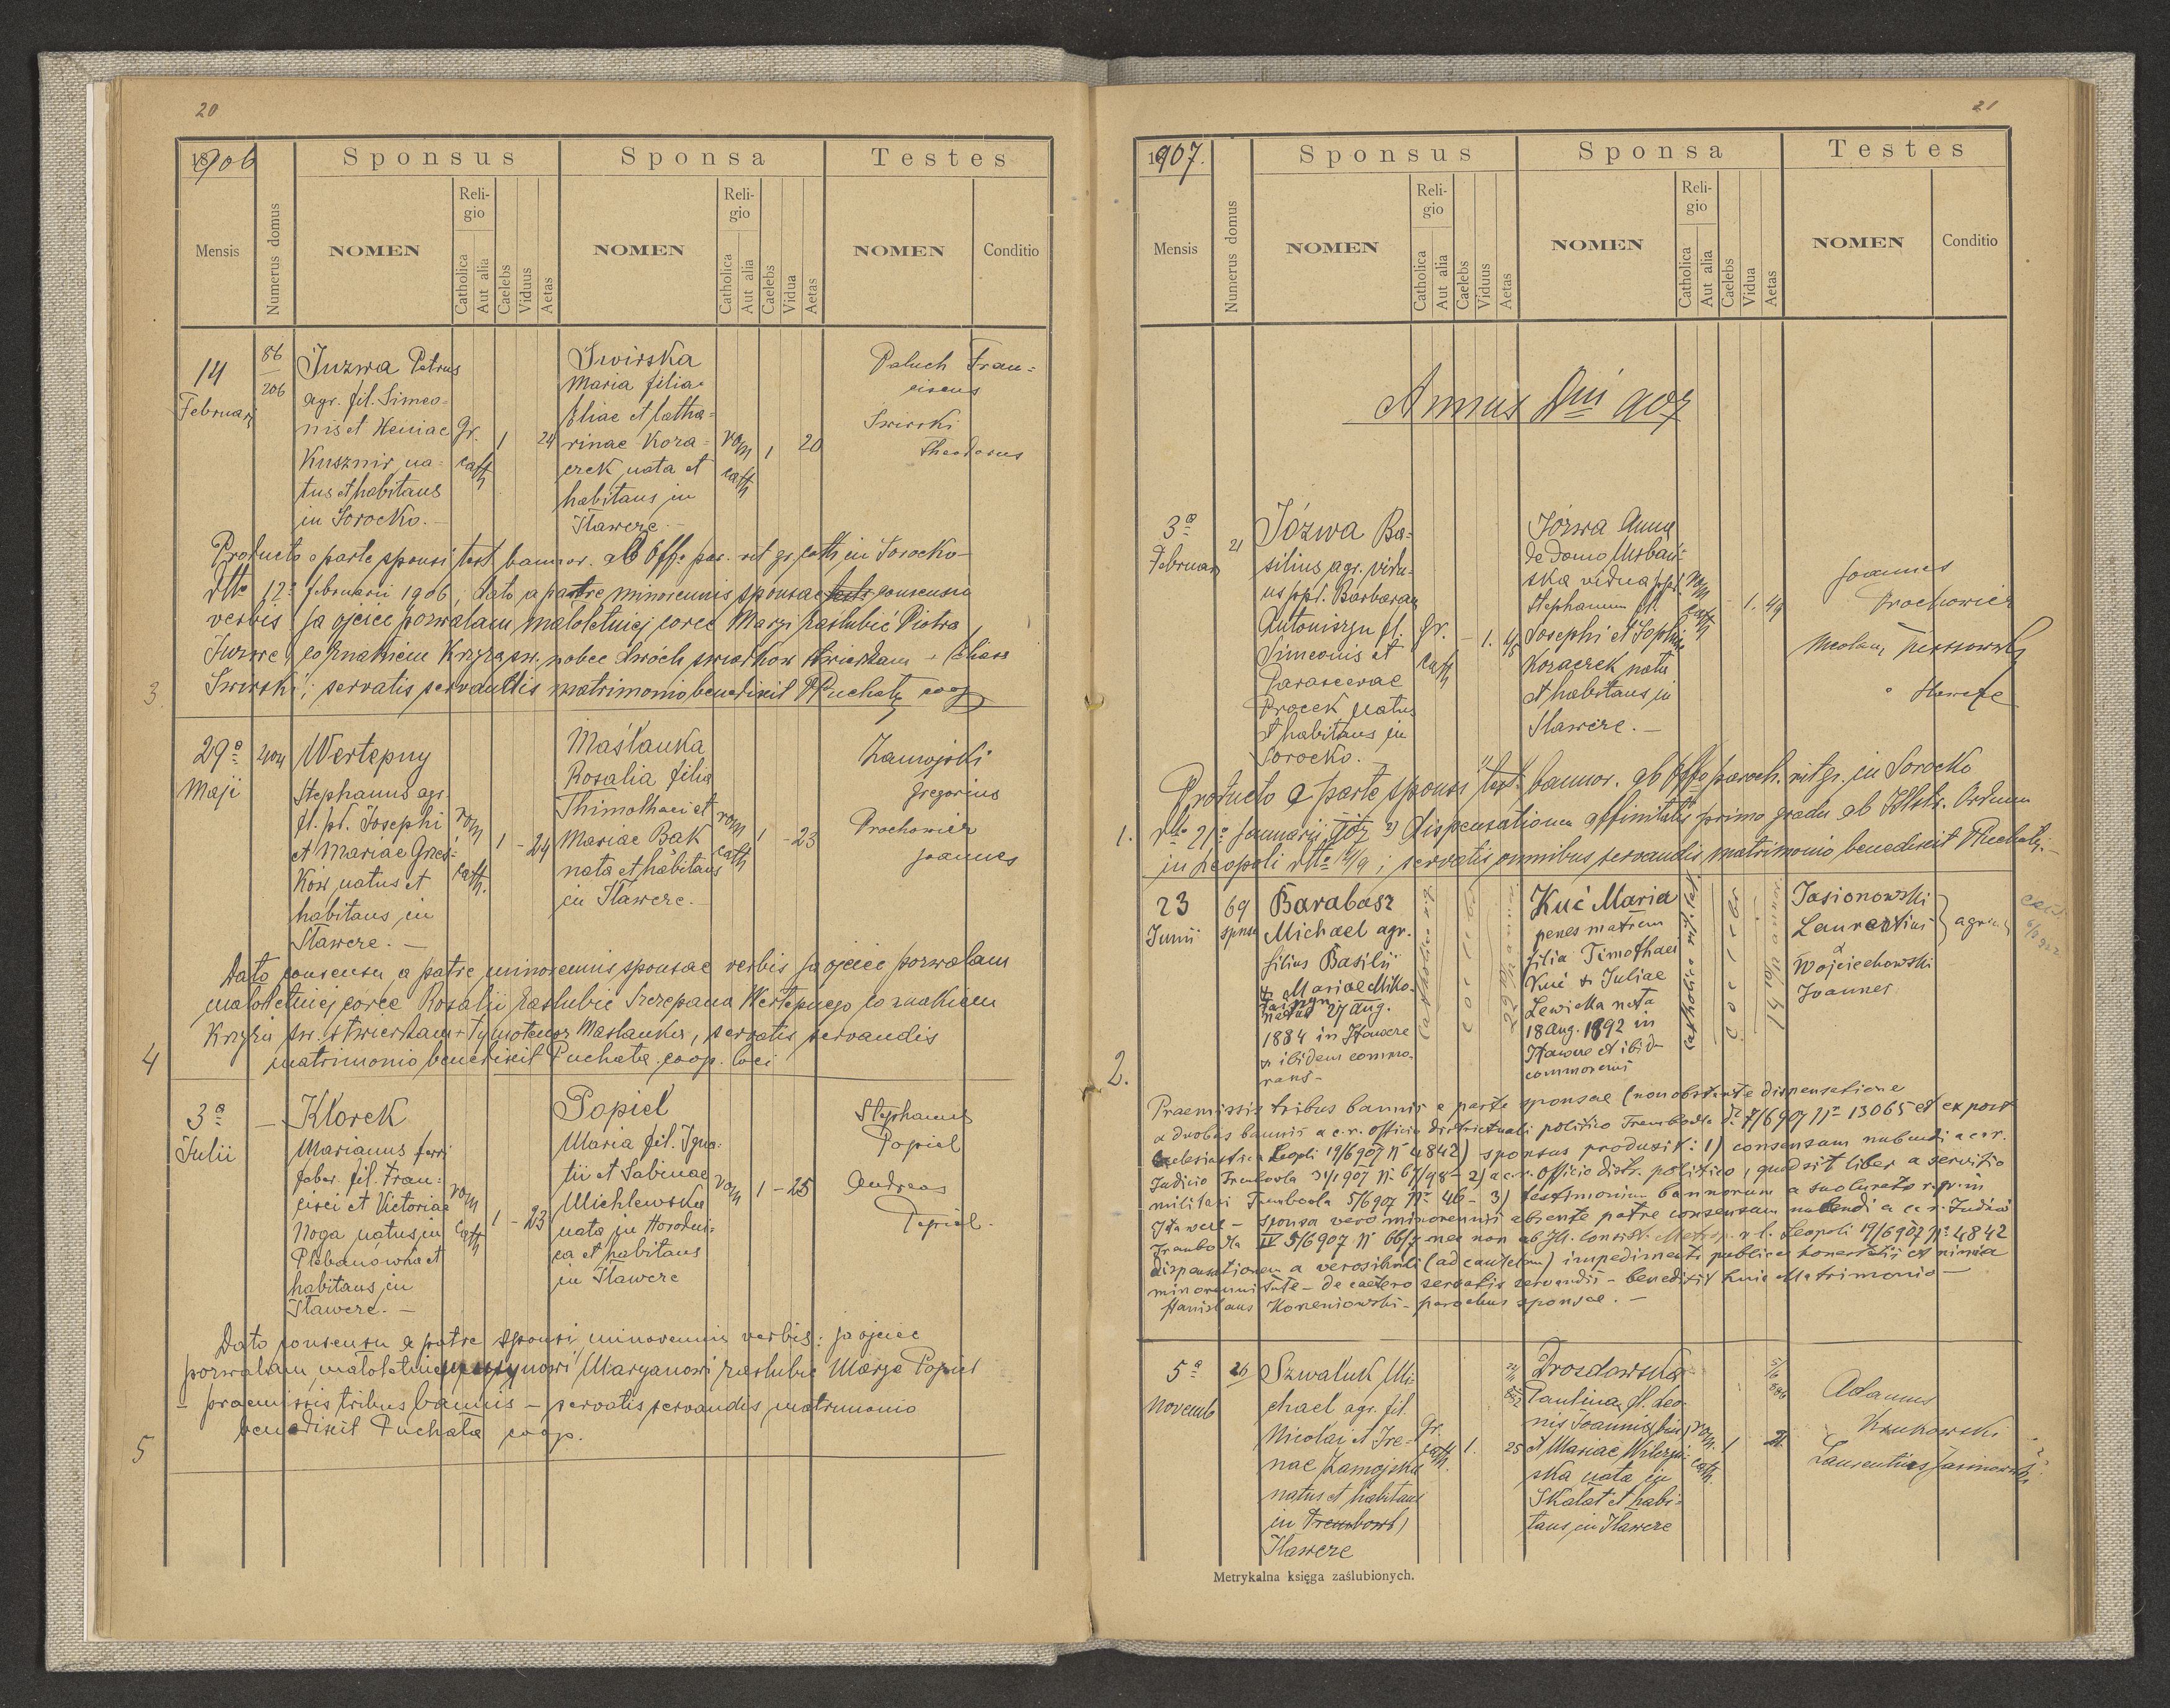 20
1906
Sponsus Sponsa Testes
Mensis
Numerus domus
NOMEN
Religio
Catholica
Aut alia
Caelebs
Viduus
Aetas
NOMEN
Religio
Catholica
Aut alia
Caelebs
Vidua
Aetas
NOMEN
Conditio
14
Februarii
86
206
Juzwa Petrus
agr. fil. Simeo-
nis et Heniae
Kusznir na-
tus et habitans
in Sorocko.
gr.
cath
1
24
Swirska
Maria filia
Eliae et Catha-
rinae Kora-
czek nata et
habitans in
Iławcze.
rom
cath
1
20
Paluch Fran-
ciscus
Swirski
Theodorus
Producto a parte sponsi test. bannor. ab Offo par. rit gr. cath in Sorocko
dtto 12a februarii 1906, dato a patre minorennis sponsae consensu
verbis "ja ojciec pozwalam małoletniej córce Maryi zaślubić Piotra
Juzwę, co znakiem Krzyża św. wobec dwóch świadków stwierdzam + Elias
Swirski"; servatis servandis matrimonio benedixit Puchała coop
3
29a
Maji
204
Wertepny
Stephanus agr.
fil. pt. Josephi
et Mariae Grześ-
ków natus et
habitans in
Iławcze. –
rom
cath.
1 - 24
Maślanka
Rosalia filia
Thimothaei et
Mariae Bak
nata et habitans
in Iławcze.
rom
cath
1 - 23
Zamojski
Gregorius
Prochowicz
Joannes
Dato consensu a patre minorennis sponsae verbis ja ojciec pozwalam
małoletniej córce Rozalii zaślubić Szczepana Wertepnego co znakiem
Krzyża św. stwierdzam + Tymoteusz Maślanka, servatis servandis
matrimonio benedixit Puchała coop. loci
4
3a
Julii
–
Klorek
Marianus ferri
faber. fil. Fran-
cisci et Victoriae
Noga natus in
Plebanówka et
habitans in
Iławcze. –
rom
cath
1 - 23
Popiel
Maria fil. Igna-
tii et Sabinae
Michlewska
nata in Horodni-
ca et habitans
in Iławcze
rom
1 - 25
Stephanus
Popiel
Andreas
Popiel.
Dato consensu a patre sponsi minorennis verbis: ja ojciec
pozwalam małoletniemu synowi Maryanowi zaślubić Maryę Popiel
– praemissis tribus bannis – servatis servandis matrimonio
benedixit Puchała coop.
5
21
1907.
Sponsus Sponsa Testes
Mensis
Numerus domus
NOMEN
Religio
Catholica
Aut alia
Caelebs
Viduus
Aetas
NOMEN
Religio
Catholica
Aut alia
Caelebs
Vidua
Aetas
NOMEN
Conditio
Annus Dni 907
3a
Februarii
21
Józwa Ba-
silius agr. vidu-
us ppt. Barbaram
Antoniszyn fil.
Simeonis et
Parascevae
Procek natus
et habitans in
Sorocko.
gr.
cath
- 1. 45
Józwa Anna
de domo Urbań-
ska vidua ppt.
Stephanum fil.
Josephi et Sophiae
Koraczek nata
et habitans in
Iławcze. –
rom
cath
- 1. 49
Joannes
Prochowicz
Iławcze
Producto a parte sponsi 1) test. bannor. ab Offo paroch. rit gr. in Sorocko
dtto 21a Januarii 907 2) dispensationem affinitatis primo gradu ab Illstr. Ordinar
in Leopoli; servatis omnibus servandis matrimonio benedixit Puchała.
1.
23
Junii
69
sponsae
Barabasz
Michael agr.
filius Basilii
et Mariae Miko-
natus 27 Aug.
1884 in Iławcze
& ibidem commo-
rans –
catholica
coelebs
Kuć Maria
penes matrem
filia Timothaei
Kuć & Juliae
Lewicka nata
18 Aug. 1892 in
Iławcze et ibid.
commorans
catholica rit. lat.
coelebs
Jasionowski
Laurentius
&
Wojciechowski
Joannes
agric.
2.
Praemissis tribus bannis e parte sponsae (non obstante dispensatione
a duobus bannis a c. r. officio districtuali politico Trembowla dto 7/6 907 No 13065 et ex parte
ecclesiastica Leopli 19/6 907 N 4842) sponsus produxit: 1) consensum nubendi a c. r.
Judicio Trembowla 31/1 907 N. 67/98 – 2) a c. r. officio distr. politico, quod sit liber a servitio
militari Trembowla 5/6 907 No 46 – 3) testimonium bannorum a suo curato r. gr. in
Iławcze – sponsa vero minorennis absente patre consensum nubendi a c. r. Judicio
Trembowla IV 5/6 907 N 66/7 nec non ab Ill. Consist. Metrop. r. l. Leopoli 19/6 907 No 4842
dispensationem a verosimili (ad cautelam) impedimenti publicae honestatis et nimia
minorennitate – de caetero servatis servandis – benedixit huic Matrimonio –
Stanislaus Korzeniowski – parochus sponsae. –
5a
Novemb
26
Szwaluk Mi-
chael agr. fil.
Nicolai et Ire-
nae Zamojska
natus et habitans
in Trembowl
Iławcze
gr.
cath.
1.
25
Drozdowska
Paulina fil. Leo-
nis Joannis
et Mariae Wilczyń-
ska nata in
Skałat et habi-
tans in Iławcze
rom.
cath.
1
21.
Adamus
Krukowski
Laurentius Jasionowski
Metrykalna księga zaślubionych.